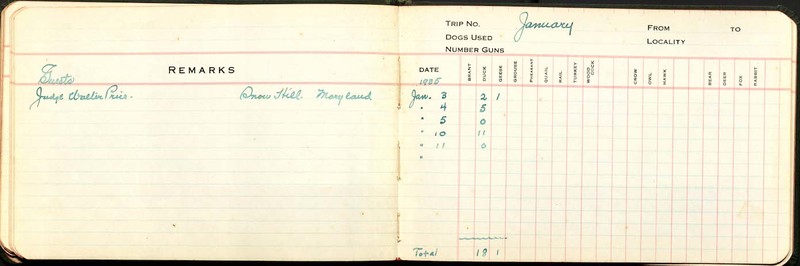 REMARKS
Guests
Judge Walter Price. Snow Hill. Maryland
TRIP NO. January FROM TO
DOGS USED LOCALITY
NUMBER GUNS
DATE BRANT DUCK GEESE GROUSE PHEASANT QUAIL RAIL TURKEY WOOD DUCK CROW OWL HAWK BEAR DEER FOX RABBIT
1935
Jan. 3 2 1
" 4 5
" 5 0
" 10 11
" 11 0
"
Total 18 1